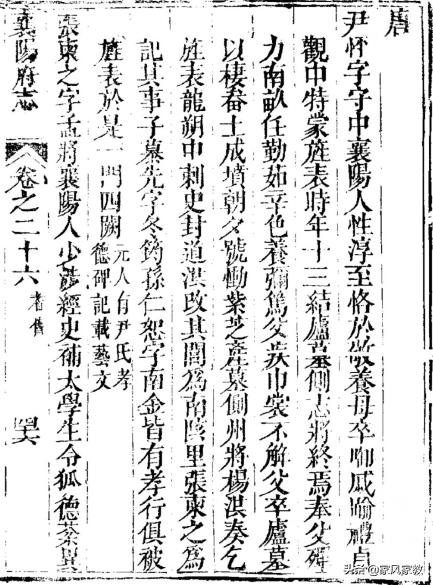 唐
尹怀字守中襄陽人性淳至恪於敬養母卒啣戚踰禮貞
觀中特蒙旌表時年十三結廬墓側志將終焉奉父殫
力南畝任勤茹辛色養彌篤父疾巾裳不解父卒廬墓
以棲畚土成墳朝夕號慟紫芝產墓側州將楊洪奏乞
旌表龍朔中刺史封道洪改其閭爲南陔里張柬之爲
記其事子慕先字冬筠孫仁恕字南金皆有孝行俱被
旌表於是一門四闕 元人有尹氏孝
德碑記載藝文
張柬之字孟將襄陽人少涉經史補太學生令狐德棻異
襄陽府志 卷之二十六 耆舊
头条 @家风家教